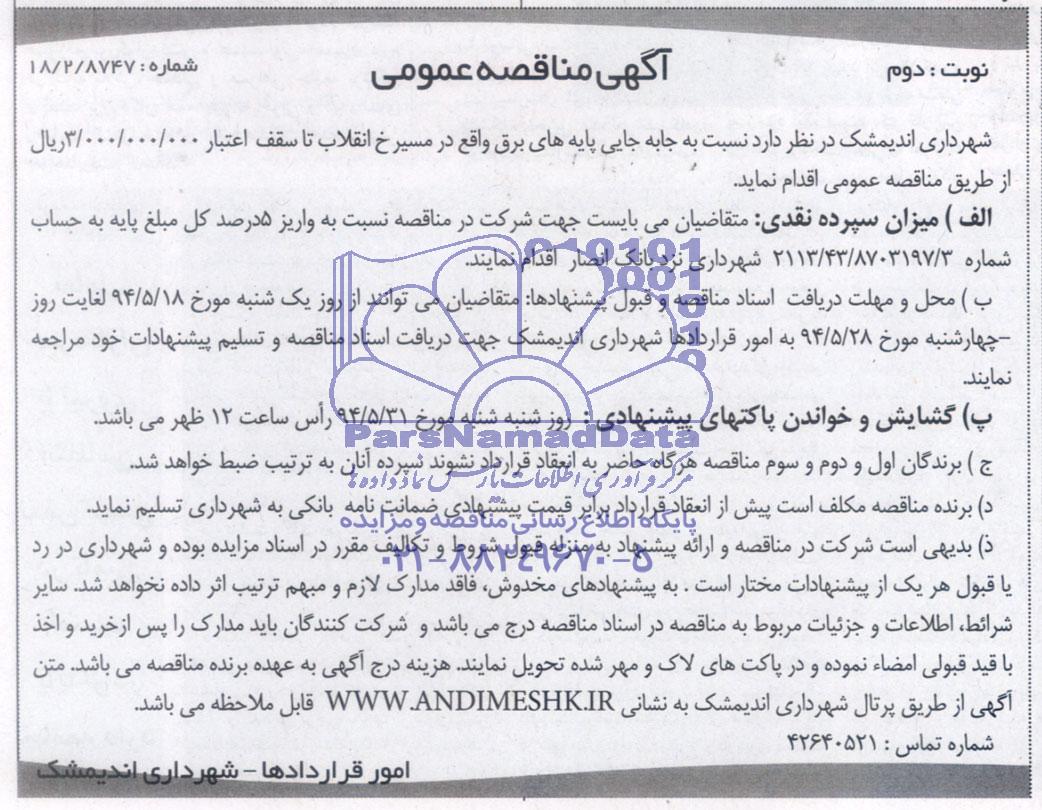 آگهی مناقصه عمومی
نوبت : دوم
شماره : ۱۸/۲/۸۷۴۷
شهرداری اندیمشک در نظر دارد نسبت به جابه جایی پایه های برق واقع در مسیر خ انقلاب تا سقف اعتبار ۳/۰۰۰/۰۰۰/۰۰۰ریال
از طریق مناقصه عمومی اقدام نماید.
الف ) میزان سپرده نقدی: متقاضیان می بایست جهت شرکت در مناقصه نسبت به واریز ۵درصد کل مبلغ پایه به حساب
شماره ۲۱۱۳/۴۳/۸۷۰۳۱۹۷/۳ شهرداری نزد بانک انصار اقدام نمایند.
ب ) محل و مهلت دریافت اسناد مناقصه و قبول پیشنهادها: متقاضیان می توانند از روز یک شنبه مورخ ۹۴/۵/۱۸ لغایت روز
-چهارشنبه مورخ ۹۴/۵/۲۸ به امور قراردادها شهرداری اندیمشک جهت دریافت اسناد مناقصه و تسلیم پیشنهادات خود مراجعه
نمایند.
پ) گشایش و خواندن پاکتهای پیشنهادی : روز شنبه شنبه مورخ ۹۴/۵/۳۱ رأس ساعت ۱۲ ظهر می باشد.
ParsNamadData
ج ) برندگان اول و دوم و سوم مناقصه هرگاه حاضر به انعقاد قرارداد نشوند سپرده آنان به ترتیب ضبط خواهد شد.
مرکز فرآوری اطلاعات پارس نماد داده ها
د) برنده مناقصه مکلف است پیش از انعقاد قرارداد برابر قیمت پیشنهادی ضمانت نامه بانکی به شهرداری تسلیم نماید.
پایگاه اطلاع رسانی مناقصه و مزایده
ذ) بدیهی است شرکت در مناقصه و ارائه پیشنهاد به منزله قبول شروط و تکالیف مقرر در اسناد مزایده بوده و شهرداری در رد
۰۲۱-۸۸۳۴۹۶۷۰-۵
یا قبول هر یک از پیشنهادات مختار است . به پیشنهادهای مخدوش، فاقد مدارک لازم و مبهم ترتیب اثر داده نخواهد شد. سایر
شرائط، اطلاعات و جزئیات مربوط به مناقصه در اسناد مناقصه درج می باشد و شرکت کنندگان باید مدارک را پس ازخرید و اخذ
با قید قبولی امضاء نموده و در پاکت های لاک و مهر شده تحویل نمایند. هزینه درج آگهی به عهده برنده مناقصه می باشد. متن
آگهی از طریق پرتال شهرداری اندیمشک به نشانی WWW.ANDIMESHK.IR قابل ملاحظه می باشد.
شماره تماس : ۴۲۶۴۰۵۲۱
امور قراردادها - شهرداری اندیمشک